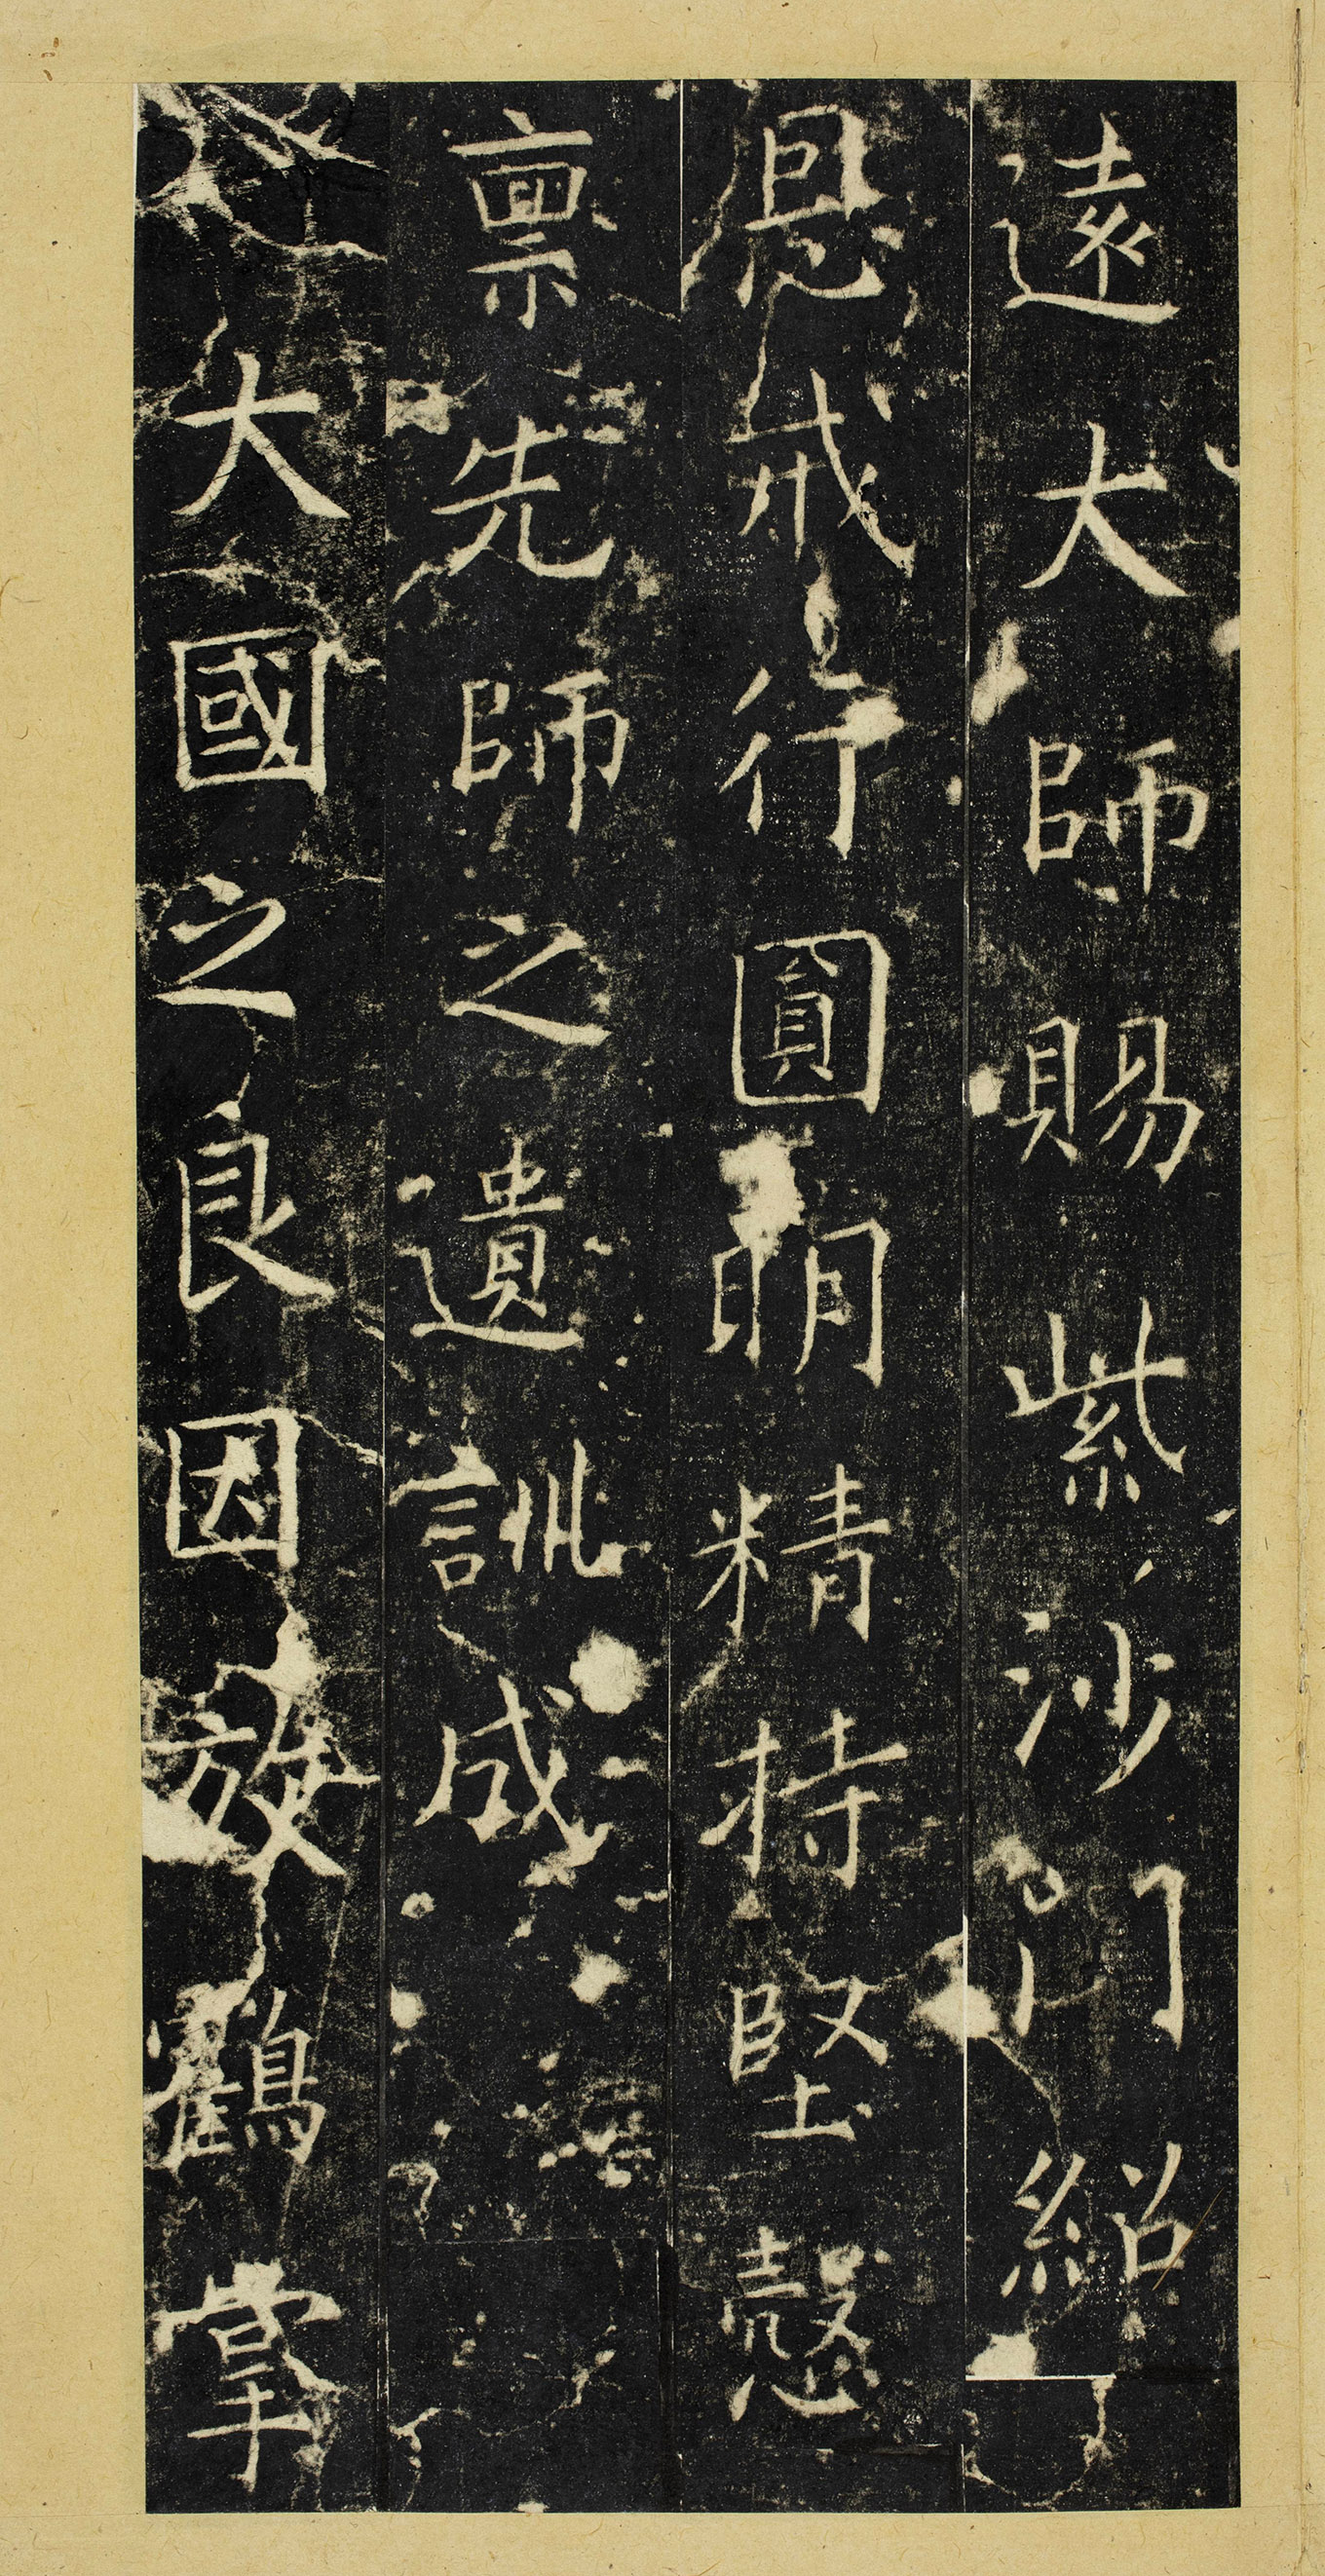 遠大師賜紫沙門紹
恩戒行圓明精持堅慤
禀先師之遺訓成
大國之良因放鶴掌